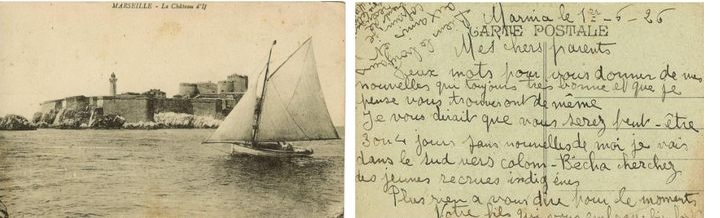 MARSEILLE - Le Château d'If
Marnia le 1er - 6 - 26
CARTE POSTALE
Mes chers parents
Deux mots pour vous donner de mes
nouvelles qui toujours très bonne et que je
pense vous trouveront de même
Je vous dirait que vous serez peut-être
3 ou 4 jours sans nouvelles de moi je vais
dans le sud vers Colom-Bécha cherchez
des jeunes recrues indigènes
Plus rien a vous dire pour le moments
Votre fils qui vous